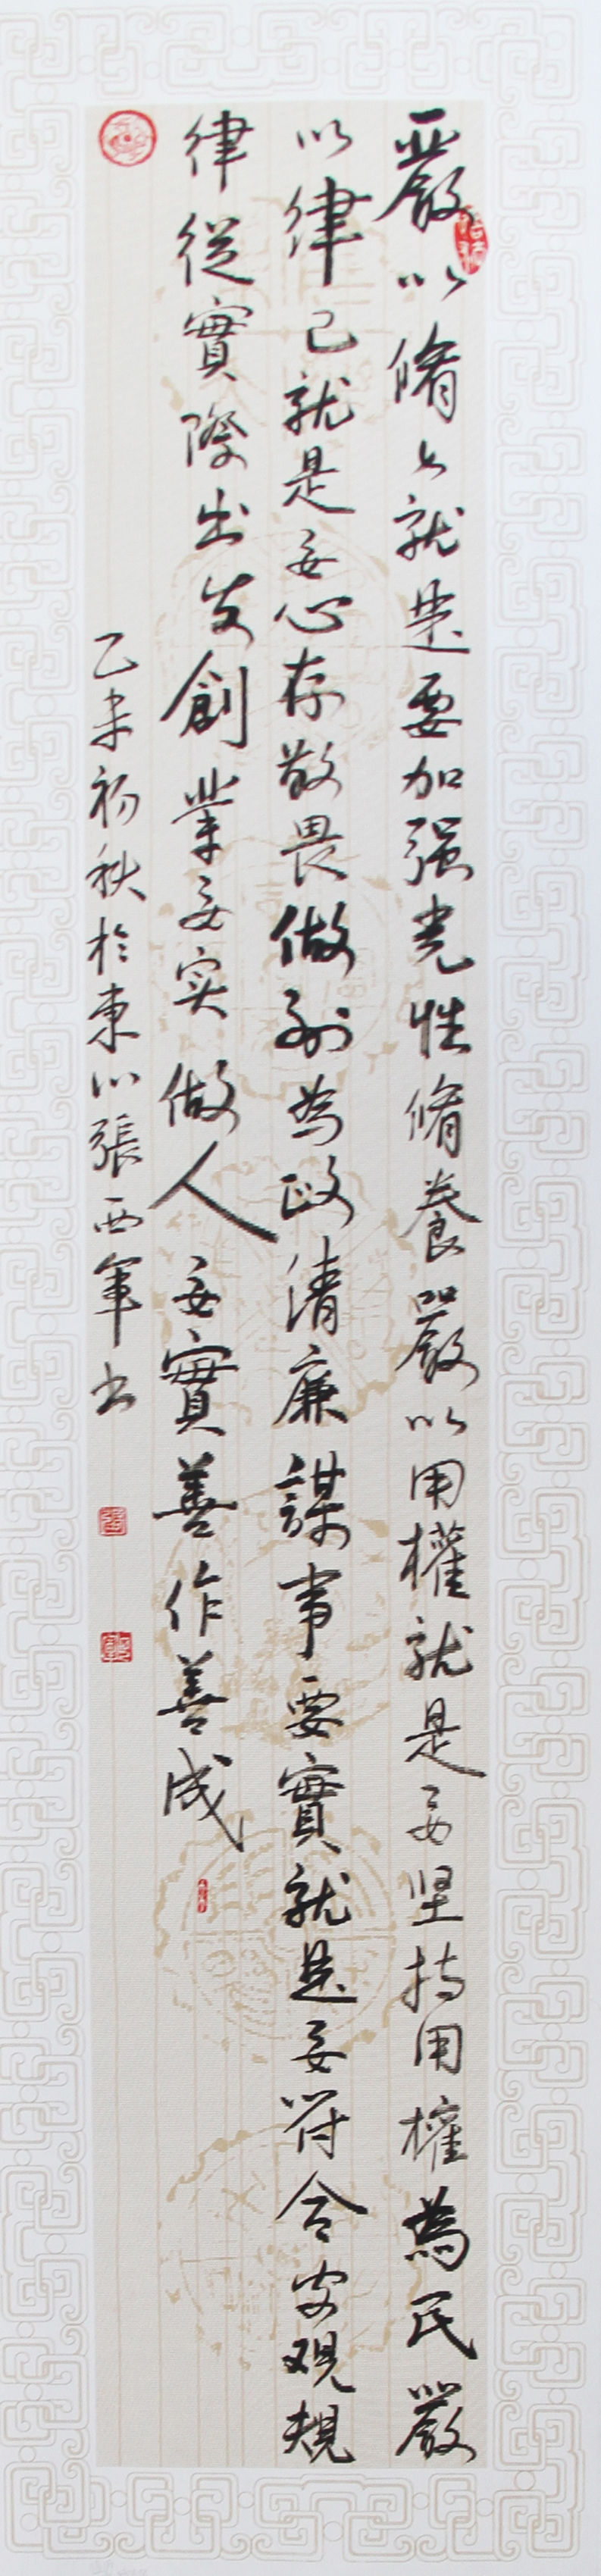 嚴以脩身就是要加强党性脩養嚴以用權就是要坚持用權為民嚴
以律己就是要心存敬畏做到为政清廉謀事要實就是要符合客观規
律從實際出发創業要实做人要實善作善成
乙未初秋於東川張西軍书